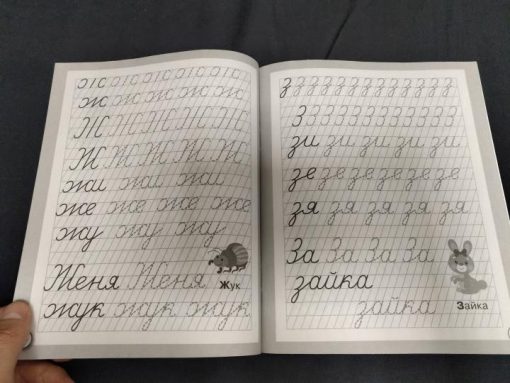 ж ж ж ж ж ж
ж ж ж ж ж ж
Ж Ж Ж Ж Ж Ж
Ж Ж Ж Ж Ж Ж
жи жи жи
же же же же
жу жу жу
Женя Женя
Жук
жук жук жук
з з з з з з з з з з з з
З З З З З З З З З З З З
зи зи зи зи зи
зе зе зе зе зе зе
зя зя зя зя зя
За За За За
зайка
зайка
Зайка